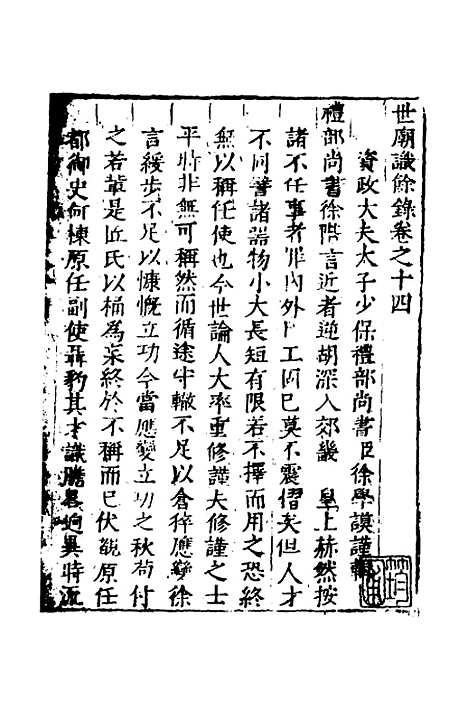 世廟識餘錄卷之十四
資政大夫太子少保禮部尚書臣徐學謨謹輯
禮部尚書徐階言近者逆胡深入郊畿 皇上赫然按
諸不任事者罪內外臣工固已莫不震慴矣但人才
不同譬諸器物小大長短有限若不擇而用之恐終
無以稱任使也今世論人大率重修謹夫修謹之士
平時非無可稱然而循途守轍不足以倉猝應變徐
言緩步不足以慷慨立功今當應變立功之秋苟付
之若輩是匠氏以桷為桼終於不稱而已伏覩原任
都御史何棟原任副使聶豹其才識膽畧逈異時流